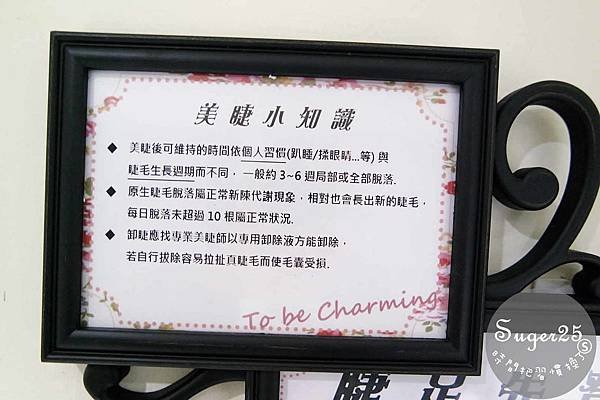 美睫小知識
◆ 美睫後可維持的時間依個人習慣(趴睡/揉眼睛...等) 與
睫毛生長週期而不同，一般約 3~6 週局部或全部脫落.
◆ 原生睫毛脫落屬正常新陳代謝現象，相對也會長出新的睫毛，
每日脫落未超過 10 根屬正常狀況.
◆ 卸睫應找專業美睫師以專用卸除液方能卸除，
若自行拔除容易拉扯真睫毛而使毛囊受損.
To be Charming
Suger25